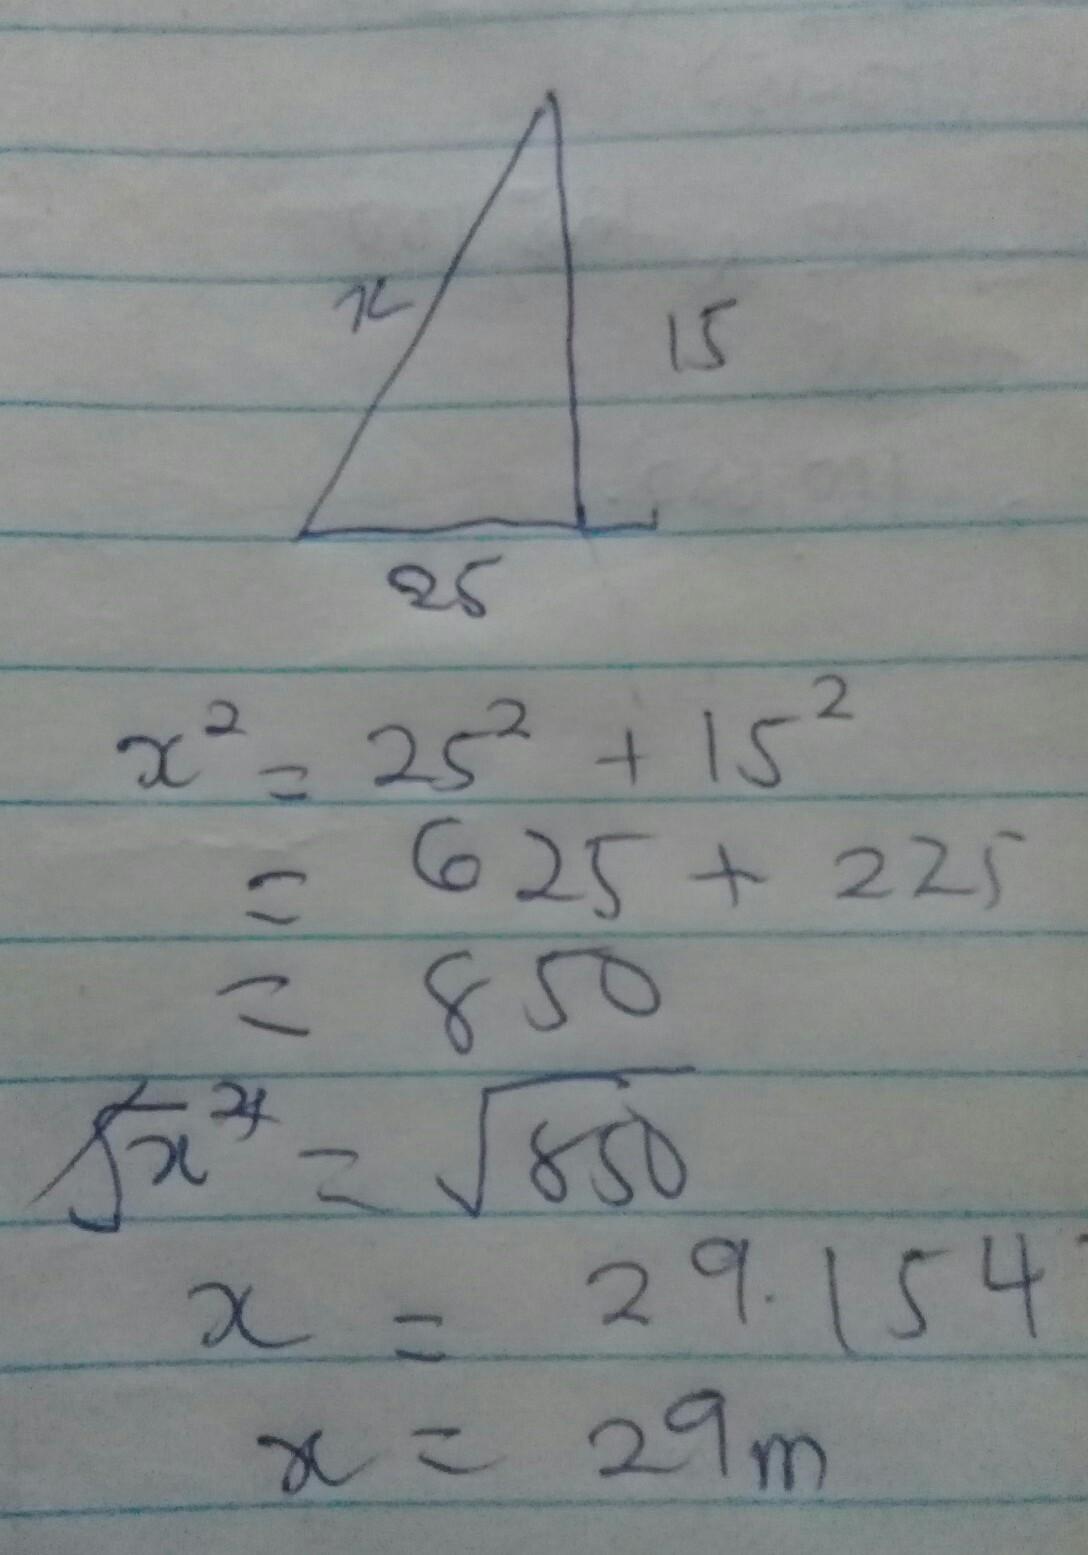 x
15
25
x² = 25² + 15²
= 625 + 225
= 850
√x² = √850
x = 29.154
x = 29m